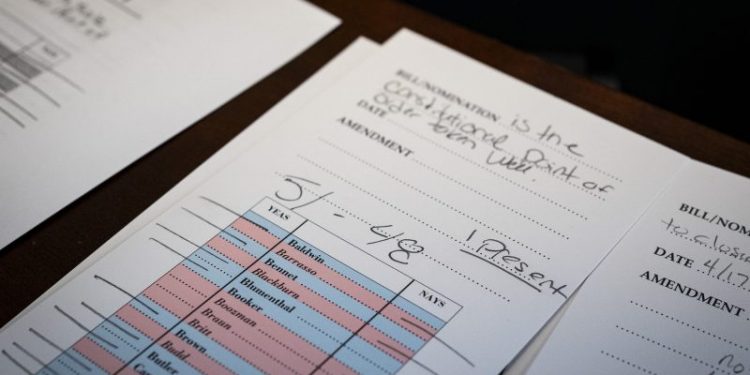 BILL/NOMINATION is the
Constitutional Point of
Order taken well.
DATE
AMENDMENT
51-48
1 Present
YEAS
NAYS
Baldwin
Barrasso
Bennet
Blackburn
Blumenthal
Booker
Boozman
Braun
Britt
Brown
Budd
Butler
BILL/NOM
to clos
DATE 4/17
AMENDMENT
no